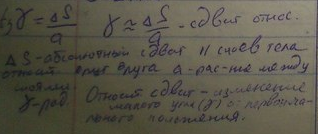 tg γ = ΔS/a γ ≈ ΔS/a - сдвиг относ.
ΔS - абсолютный сдвиг II слоев тела
относит. друг друга a - рас-ние между
слоями
γ - рад. Относит. сдвиг - изменение
малого угла (γ) первоначального положения.